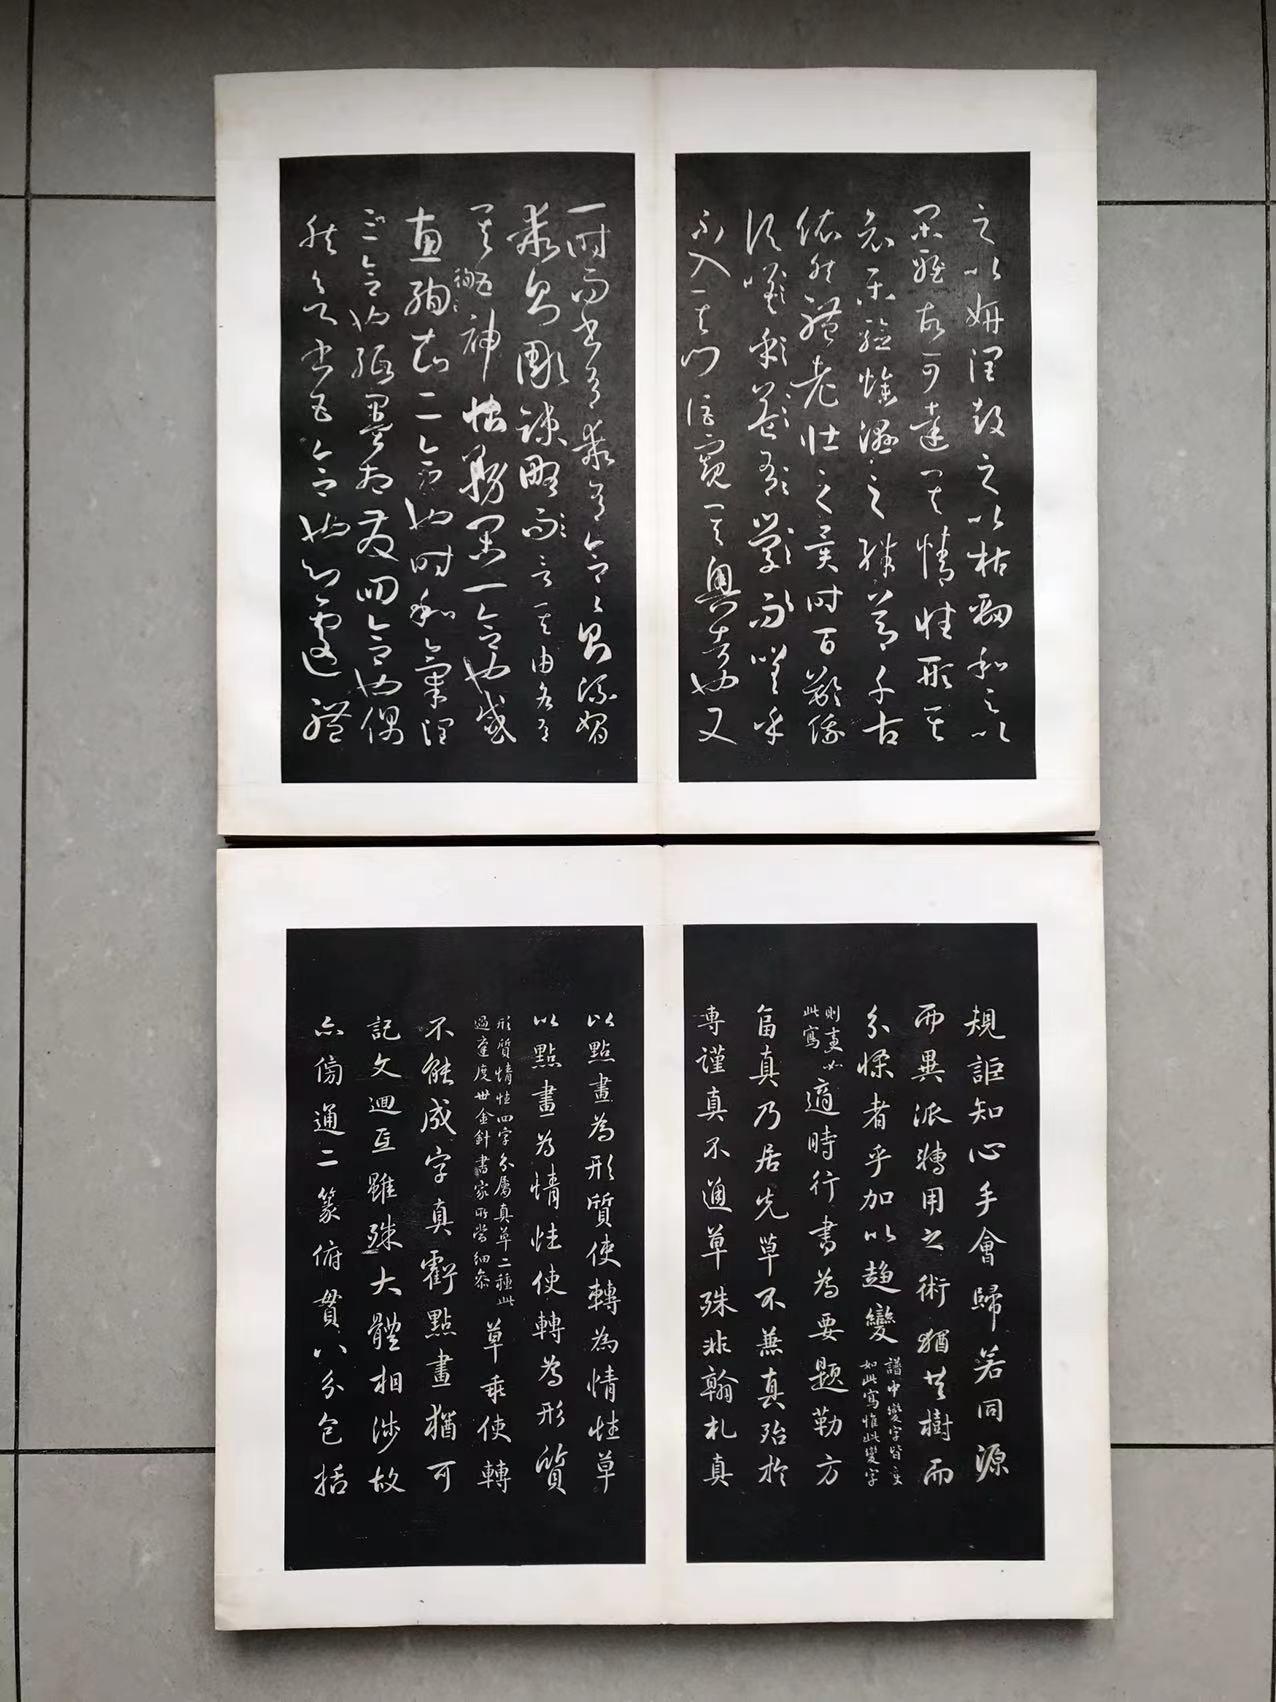 之以妍潤鼓之以枯勁和之以
閑雅故可達其情性形其
哀樂驗燥濕之殊節千古
依然體老壯之異時百齡俄
頃嗟蓋有學而嗟乎
不入其門詎窺其奧者也又
一時而書有乖有合合則流媚
乖則彫疎略而言其由各有
其五神怡務閑一合也感
惠徇知二合也時和氣潤
三合也紙墨相發四合也偶
然欲書五合也心遽體
規詎知心手會歸若同源
而異派轉用之術猶共樹而
分條者乎加以趨變譜中變字皆如此寫惟此變字
則更如此寫適時行書為要題勒方
畐真乃居先草不兼真殆於
專謹真不通草殊非翰札真
以點畫為形質使轉為情性草
以點畫為情性使轉為形質
形質情性四字分屬真草二種此過庭度世金針書家所當細參草乖使轉
不能成字真虧點畫猶可
記文迴互雖殊大體相涉故
亦傍通二篆俯貫八分包括